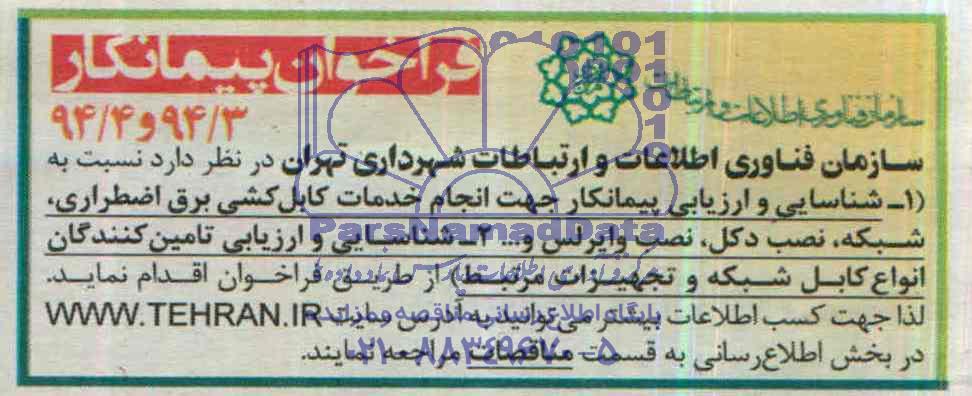 فراخوان پیمانکار
۹۴/۳ و ۹۴/۴
سازمان فناوری اطلاعات و ارتباطات
سازمان فناوری اطلاعات و ارتباطات شهرداری تهران در نظر دارد نسبت به
(۱ـ شناسایی و ارزیابی پیمانکار جهت انجام خدمات کابل‌کشی برق اضطراری،
شبکه، نصب دکل، نصب وایرلس و... ۲ـ شناسایی و ارزیابی تامین‌کنندگان
انواع کابل شبکه و تجهیزات مرتبط) از طریق فراخوان اقدام نماید.
لذا جهت کسب اطلاعات بیشتر می‌توانید به آدرس سایت WWW.TEHRAN.IR
در بخش اطلاع‌رسانی به قسمت مناقصات مراجعه نمایند.
ParsNamadData
پایگاه اطلاع رسانی مناقصه و مزایده
۰۲۱-۸۸۳۴۹۶۷۰-۵